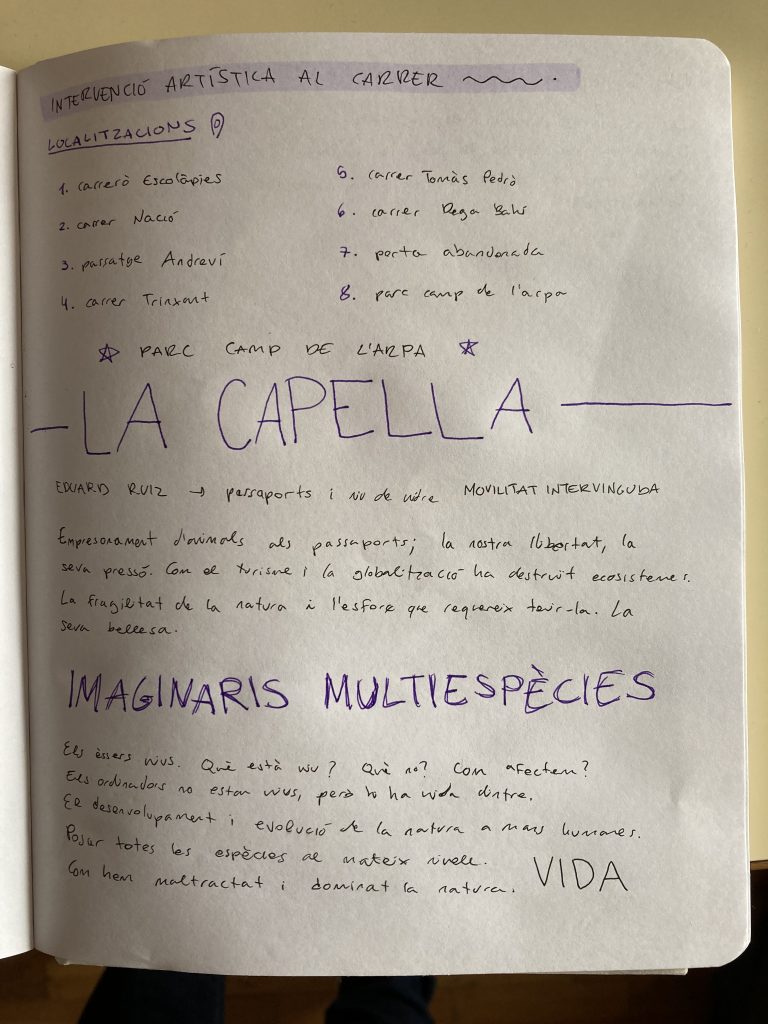 INTERVENCIÓ ARTÍSTICA AL CARRER
LOCALITZACIONS
1. carreró Escolàpies
2. carrer Nació
3. passatge Andreví
4. carrer Trinxant
5. carrer Tomàs Pedrò
6. carrer Dega Bahí
7. porta abandonada
8. parc camp de l'arpa
PARC CAMP DE L'ARPA
LA CAPELLA
EDUARD RUIZ → passaports i niu de vidre MOVILITAT INTERVINGUDA
Empresonament d'animals als passaports; la nostra llibertat, la
seva pressó. Com el turisme i la globalització ha destruït ecosistemes.
La fragilitat de la natura i l'esforç que requereix tenir-la. La
seva bellesa.
IMAGINARIS MULTIESPÈCIES
Els èssers vius. Què està viu? Què no? Com afectem?
Els ordinadors no estan vius, però hi ha vida dintre.
El desenvolupament i evolució de la natura a mans humanes.
Posar totes les espècies al mateix nivell.
Com hem maltractat i dominat la natura. VIDA